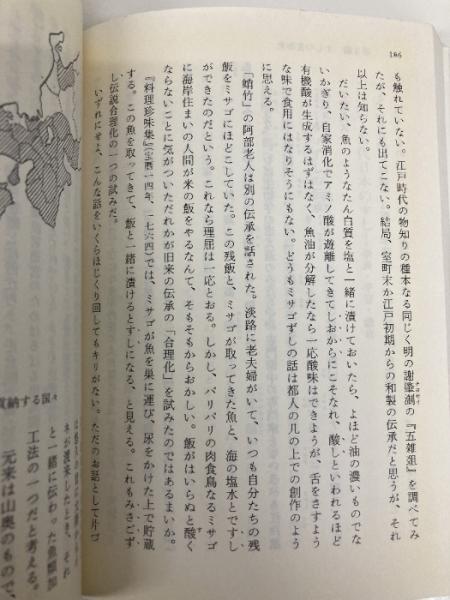 186
も触れていない。江戸時代の物知りの種本なる同じく明の謝肇淛の『五雑俎』を調べてみ
たが、それにも出てこない。結局、室町末か江戸初期からの和製の伝承だと思うが、それ
以上は知らない。
だいたい、魚のようなたん白質を塩と一緒に漬けておいたら、よほど油の濃いものでな
いかぎり、自家消化でアミノ酸が遊離してきてしおからにこそなれ、酸しといわれるほど
有機酸が生成するはずはなく、魚油が分解したなら一応酸味はできようが、舌をさすよう
な味で食用にはなりそうにもない。どうもミサゴずしの話は都人の几の上での創作のよう
に思える。
「蛸竹」の阿部老人は別の伝承を話された。淡路に老夫婦がいて、いつも自分たちの残
飯をミサゴにほどこしていた。この残飯と、ミサゴが取ってきた魚と、海の塩水とですし
ができたのだという。これなら理屈は一応とおる。しかし、バリバリの肉食鳥なるミサゴ
に海岸住まいの人間が米の飯をやるなんて、そもそもからおかしい。飯がはいらぬと酸く
ならないことに気がついただれかが旧来の伝承の「合理化」を試みたのではあるまいか。
『料理珍味集』(宝暦一四年、一七六四)では、ミサゴが魚を巣に運び、尿をかけた上で貯蔵
する。この魚を取ってきて、飯と一緒に漬けるとすしになる、と見える。これもみさごず
し伝説合理化の一つの試みだ。
いずれにせよ、こんな話をいくらほじくり回してもキリがない。ただのお話として片づ
貢納する国々
ネが渡来したとき、それ
と一緒に伝わった魚類加
工法の一つだと考える。
元来は山奥のもので、